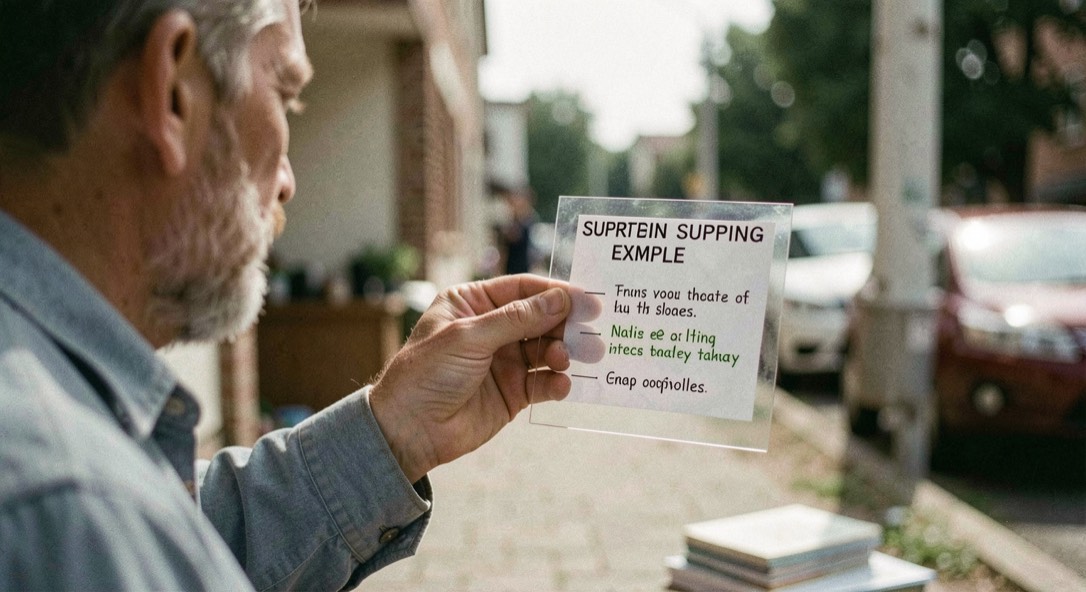 SUPRTEIN SUPPING
EXMPLE
— Tnns vou thoate of
lu th sloaes.
— Nalis ee or lting
intecs bnaley tahay
— Gnap